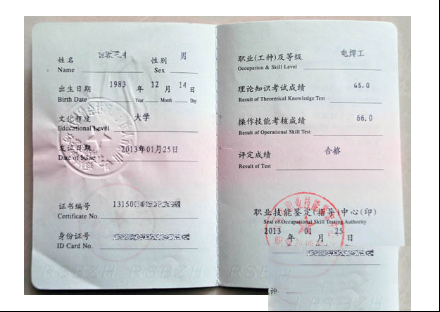 姓名 性别 男
Name Sex
出生日期 1983 年 12 月 14 日
Birth Date Year Month Day
文化程度 大学
Educational Level
发证日期 2013年01月25日
Date of Issue
证书编号 13150
Certificate No.
身份证号
ID Card No.
职业(工种)及等级 电焊工
Occupation & Skill Level
理论知识考试成绩
Result of Theoretical Knowledge Test
操作技能考核成绩 66.0
Result of Operational Skill Test
评定成绩 合格
Result of Test
职业技能鉴定(指导)中心(印)
Seal of Occupational Skill Testing Authority
2013 年 01 月 25 日